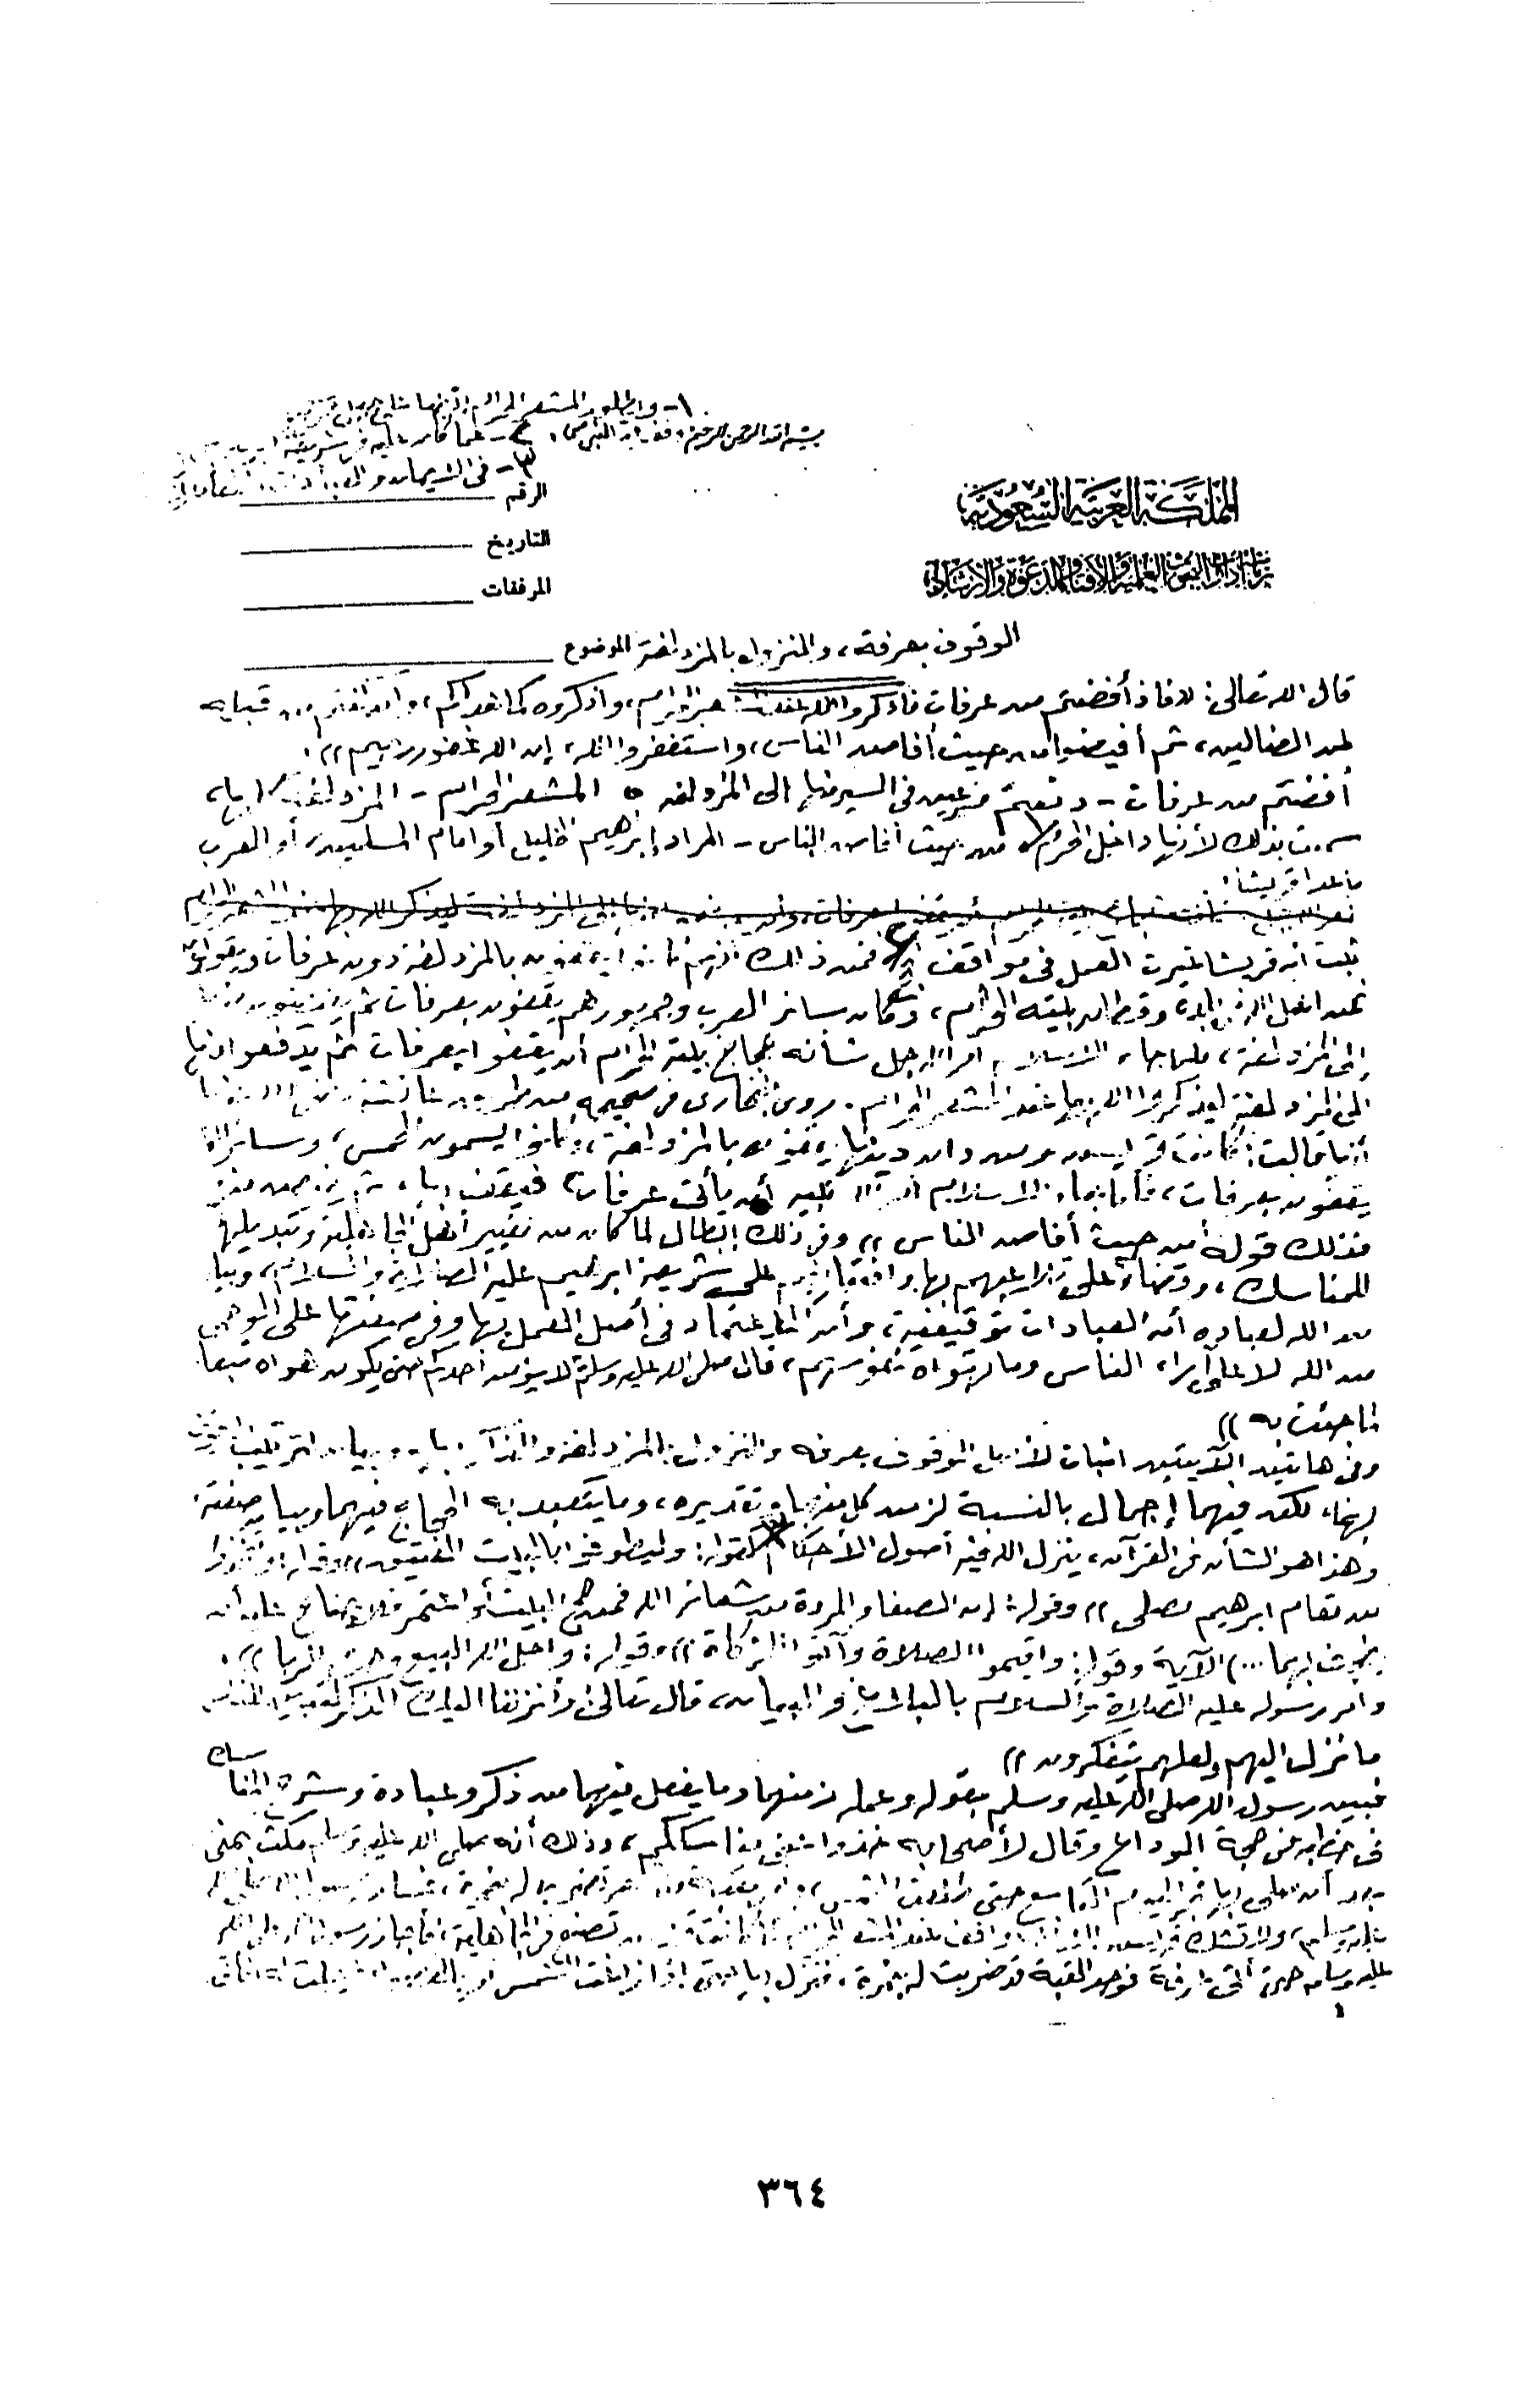 ١- وإطلاق المشعر الحرام
٢- عما كان عليه في شريعة
٣- في الإيمان و
بسم الله الرحمن الرحيم
المملكة العربية السعودية
إدارات البحوث العلمية والافتاء والدعوة والارشاد
الرقم
التاريخ
المرفقات
الموضوع الوقوف بعرفة، والنزول بالمزدلفة
قال الله تعالى: فاذا أفضتم من عرفات فاذكروا الله عند المشعر الحرام، واذكروه كما هداكم، وان كنتم من قبله
لمن الضالين، ثم أفيضوا من حيث أفاض الناس، واستغفروا الله، إن الله غفور رحيم)).
أفضتم من عرفات - دفعتم مسرعين في السير منها الى المزدلفة ٥ المشعر الحرام - المزدلفة كلها،
سميت بذلك لأنها داخل الحرم ٥ من حيث أفاض الناس - المراد إبراهيم الخليل أو امام المسلمين، أو العرب
ما عدا قريشا.
ثبت أن قريشا غيرت العمل في مواقف الحج فمن ذلك أنهم كانوا يقفون بالمزدلفة دون عرفات ويقولون
نحن اهل الله في بلده وقطان بيته الحرام، وكان سائر العرب وجمهورهم يقفون بعرفات ثم يفيضون منها
إلى المزدلفة، فلما جاء الاسلام أمر الله جل شأنه حجاج بيته الحرام أن يقفوا بعرفات ثم يدفعوا منها
الى المزدلفة ليذكروا الله بها عند المشعر الحرام. روى البخاري في صحيحه من طريق عائشة رضي الله عنها
أنها قالت: كانت قريش ومن دان دينها يقفون بالمزدلفة، وكانوا يسمون الحمس، وسائر
يقفون بعرفات، فلما جاء الاسلام أمر الله نبيه أن يأتي عرفات، فيقف بها، ثم يفيض منها
فذلك قوله من حيث أفاض الناس)) وفي ذلك إبطال لما كان من تغيير أهل الجاهلية وتبديلهم
للمناسك، وقضاء على على شريعة ابرهيم عليه الصلاة والسلام، وبيان
من الله لعباده أن العبادات توقيفية، وأن الاعتماد في أصل العمل بها وفي صفتها على الوحي
من الله لا على آراء الناس وما تهواه نفوسهم، قال صلى الله عليه وسلم لا يؤمن أحدكم حتى يكون هواه تبعا
لما جئت به))
وفي هاتين الآيتين اثبات لأصل الوقوف بعرفة والنزول بالمزدلفة والذكر بها، وبيان الترتيب
بينهما، لكن فيهما إجمال بالنسبة لزمن كل منهما وتقديره، وما يتعبد به الحجاج فيهما وبيان صفته
وهذا هو الشأن في القرآن، ينزل الله فيه أصول الأحكام كقوله: وليطوفوا بالبيت العتيق)) وقوله: واتخذوا
من مقام ابرهيم مصلى)) وقوله: ان الصفا والمروة من شعائر الله فمن حج البيت أو اعتمر فلا جناح عليه أن
يطوف بهما ...)) الآية وقوله: واقيموا الصلاة وآتوا الزكاة)) وقوله: واحل الله البيع وحرم الربا)).
وامر رسوله عليه الصلاة والسلام بالبلاغ والبيان، قال تعالى: وأنزلنا اليك الذكر لتبين للناس
ما نزل اليهم ولعلهم يتفكرون))
فبين رسول الله صلى الله عليه وسلم بقوله وعمله زمنهما وما يفعل فيهما من ذكر وعبادة وشرح المناسك
في خطابه في حجة الوداع وقال لأصحابه خذوا عني مناسككم، وذلك أنه صلى الله عليه وسلم مكث بمنى
بعد أن صلى بها فجر اليوم التاسع حتى طلعت الشمس، وأمر بقبة من شعر تضرب له بنمرة، فسار رسول الله صلى الله
عليه وسلم، ولا تشك قريش إلا أنه واقف عند المشعر الحرام كما كانت قريش تصنع في الجاهلية، فأجاز رسول الله صلى الله
عليه وسلم حتى أتى عرفة فوجد القبة قد ضربت له بنمرة، فنزل بها حتى اذا زاغت الشمس أمر بالقصواء فرحلت له فأتى
١
٣٦٤